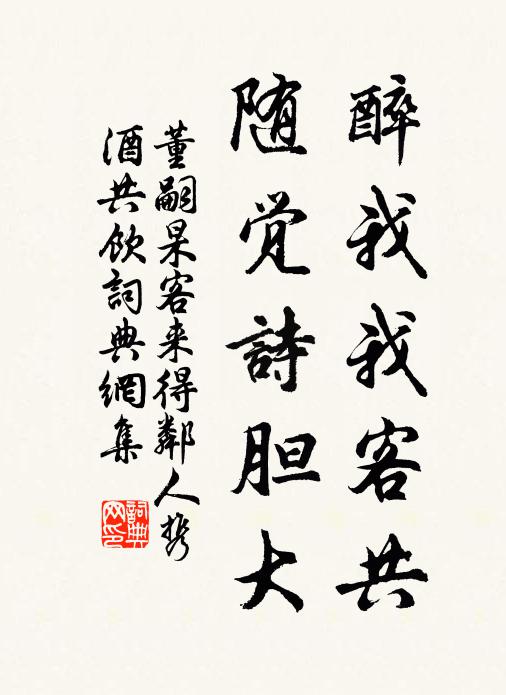 醉我我客共
随觉詩胆大
董嗣杲客来得鄰人携
酒共飲詞典網集
詞典
网印